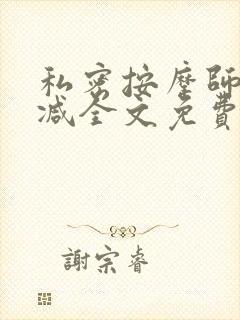 私密按摩師
减全文免費
謝宗睿